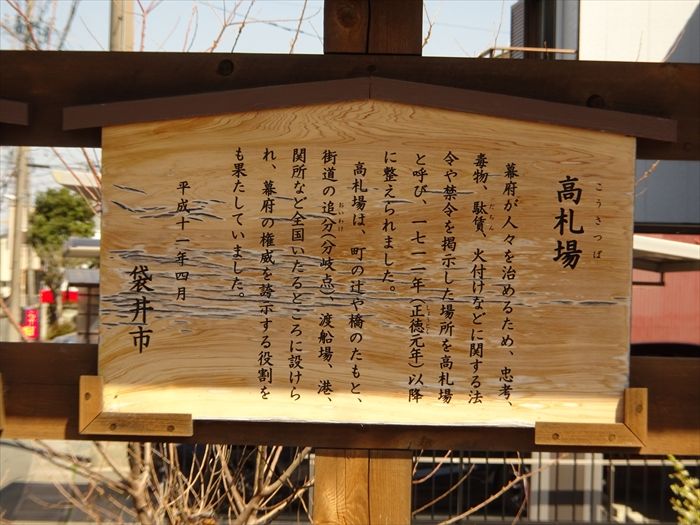 こうさつば
高札場
幕府が人々を治めるため、忠考、
だちん
毒物、駄賃、火付けなどに関する法
令や禁令を掲示した場所を高札場
しょうとく
と呼び、一七一一年（正徳元年）以降
に整えられました。
高札場は、町の辻や橋のたもと、
おいわけ
街道の追分（分岐点）、渡船場、港、
関所など全国いたるところに設けら
れ、幕府の権威を誇示する役割を
も果たしていました。
平成十一年四月
袋井市